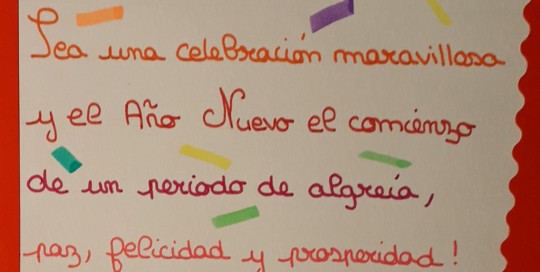 Sea una celebración maravillosa
y el Año Nuevo el comienzo
de un periodo de algreía,
paz, felicidad y prosperidad!